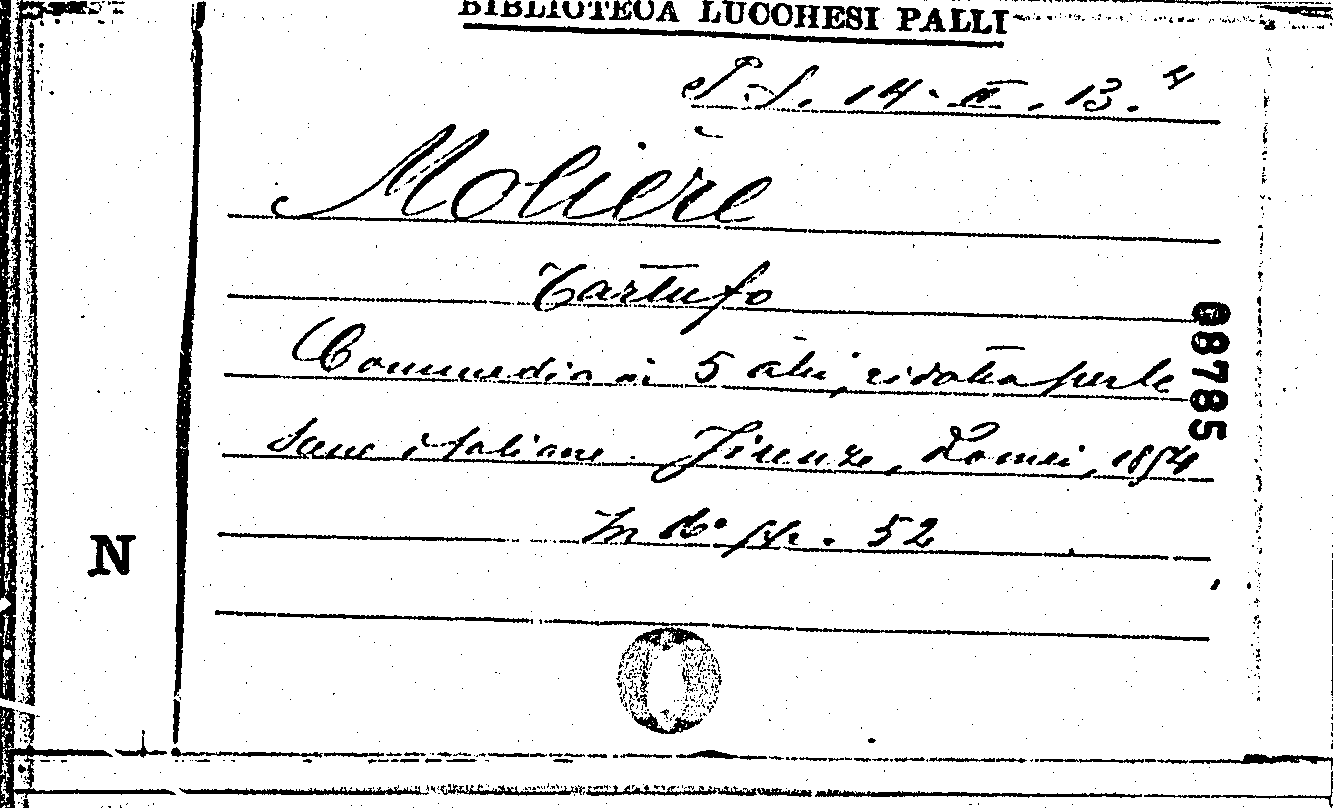 BIBLIOTECA LUCCHESI PALLI
P.S. 14. II. 13. 4
Molière
Tartufo
Commedia in 5 atti, ridotta per le
scene italiane. Firenze, Romei, 1854
In 16° pp. 52
08785
N